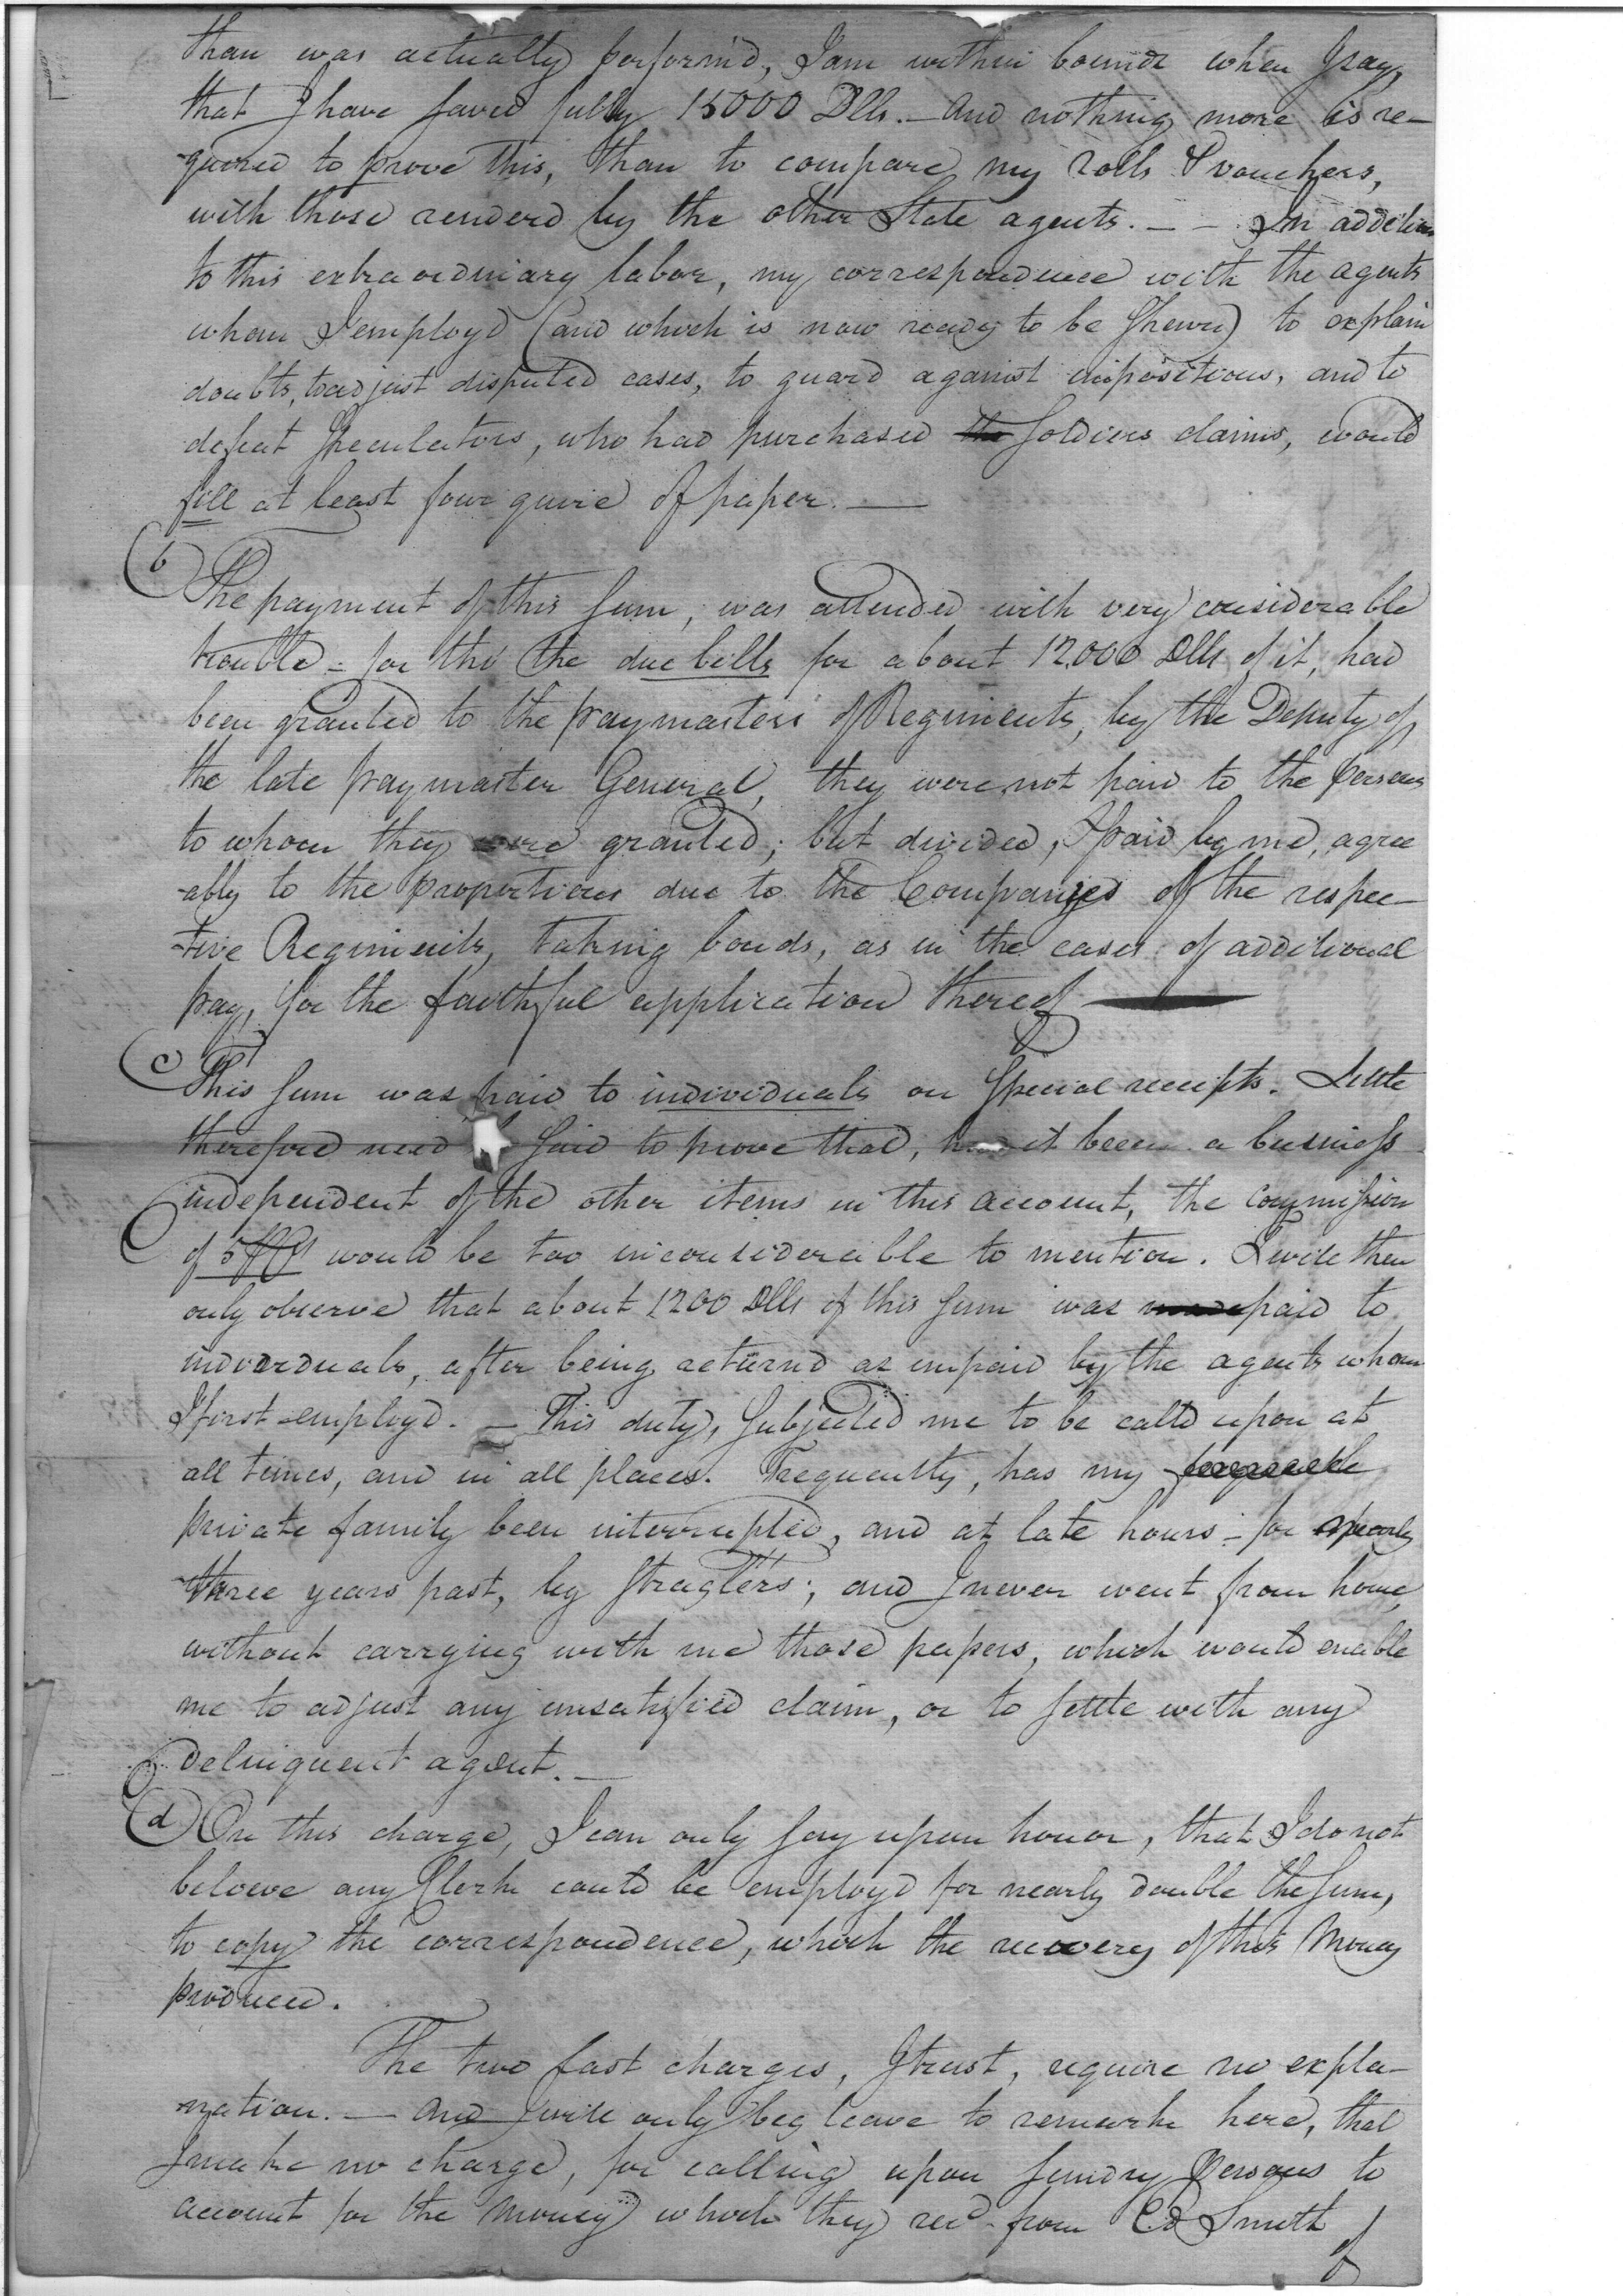 than was actually perform'd, I am within bounds when I say,
that I have saved fully 15000 Dlls. — And nothing more is re-
-quired to prove this, than to compare my rolls & vouchers,
with those renderd by the other State agents. — — In addition
to this extraordinary labor, my correspondence with the agents
whom I employd (and which is now ready to be shewn) to explain
doubts, to adjust disputed cases, to guard against impositions, and to
defeat Speculators, who had purchased the Soldiers claims, would
fill at least four quire of paper. —
(b) The payment of this sum, was attended with very considerable
trouble - for tho' the due bills for about 12.000 Dlls of it, had
been granted to the paymasters of Regiments, by the Deputy of
the late paymaster General, they were not paid to the persons
to whom they were granted; but divided, & paid by me, agree
-ably to the proportions due to the Companyes of the respec-
-tive Regiments, taking bonds, as in the cases of additional
pay, for the faithful application thereof —
(c) This sum was paid to individuals on Special receipts. Little
therefore need be said to prove that, had it been a business
independent of the other items in this account, the commission
of would be too inconsiderable to mention. I will then
only observe that about 1200 Dlls of this sum was made paid to
individuals, after being returnd as unpaid by the agents whom
I first employd. — This duty, subjected me to be calld upon at
all times, and in all places. Frequently, has my
private family been interrupted, and at late hours - for nearly
three years past, by straglers; and I never went from home,
without carrying with me those papers, which would enable
me to adjust any unsatisfied claim, or to settle with any
delinquent agent. —
(d) On this charge, I can only say upon honor, that I do not
beleeve any Clerk could be employd for nearly double the sum,
to copy the correspondence, which the recovery of this Money
produced.
The two last charges, I trust, require no expla-
-nation. — And I will only beg leave to remark here, that
I make no charge, for calling upon sundry Persons to
account for the money which they recd from Cd Smith
of